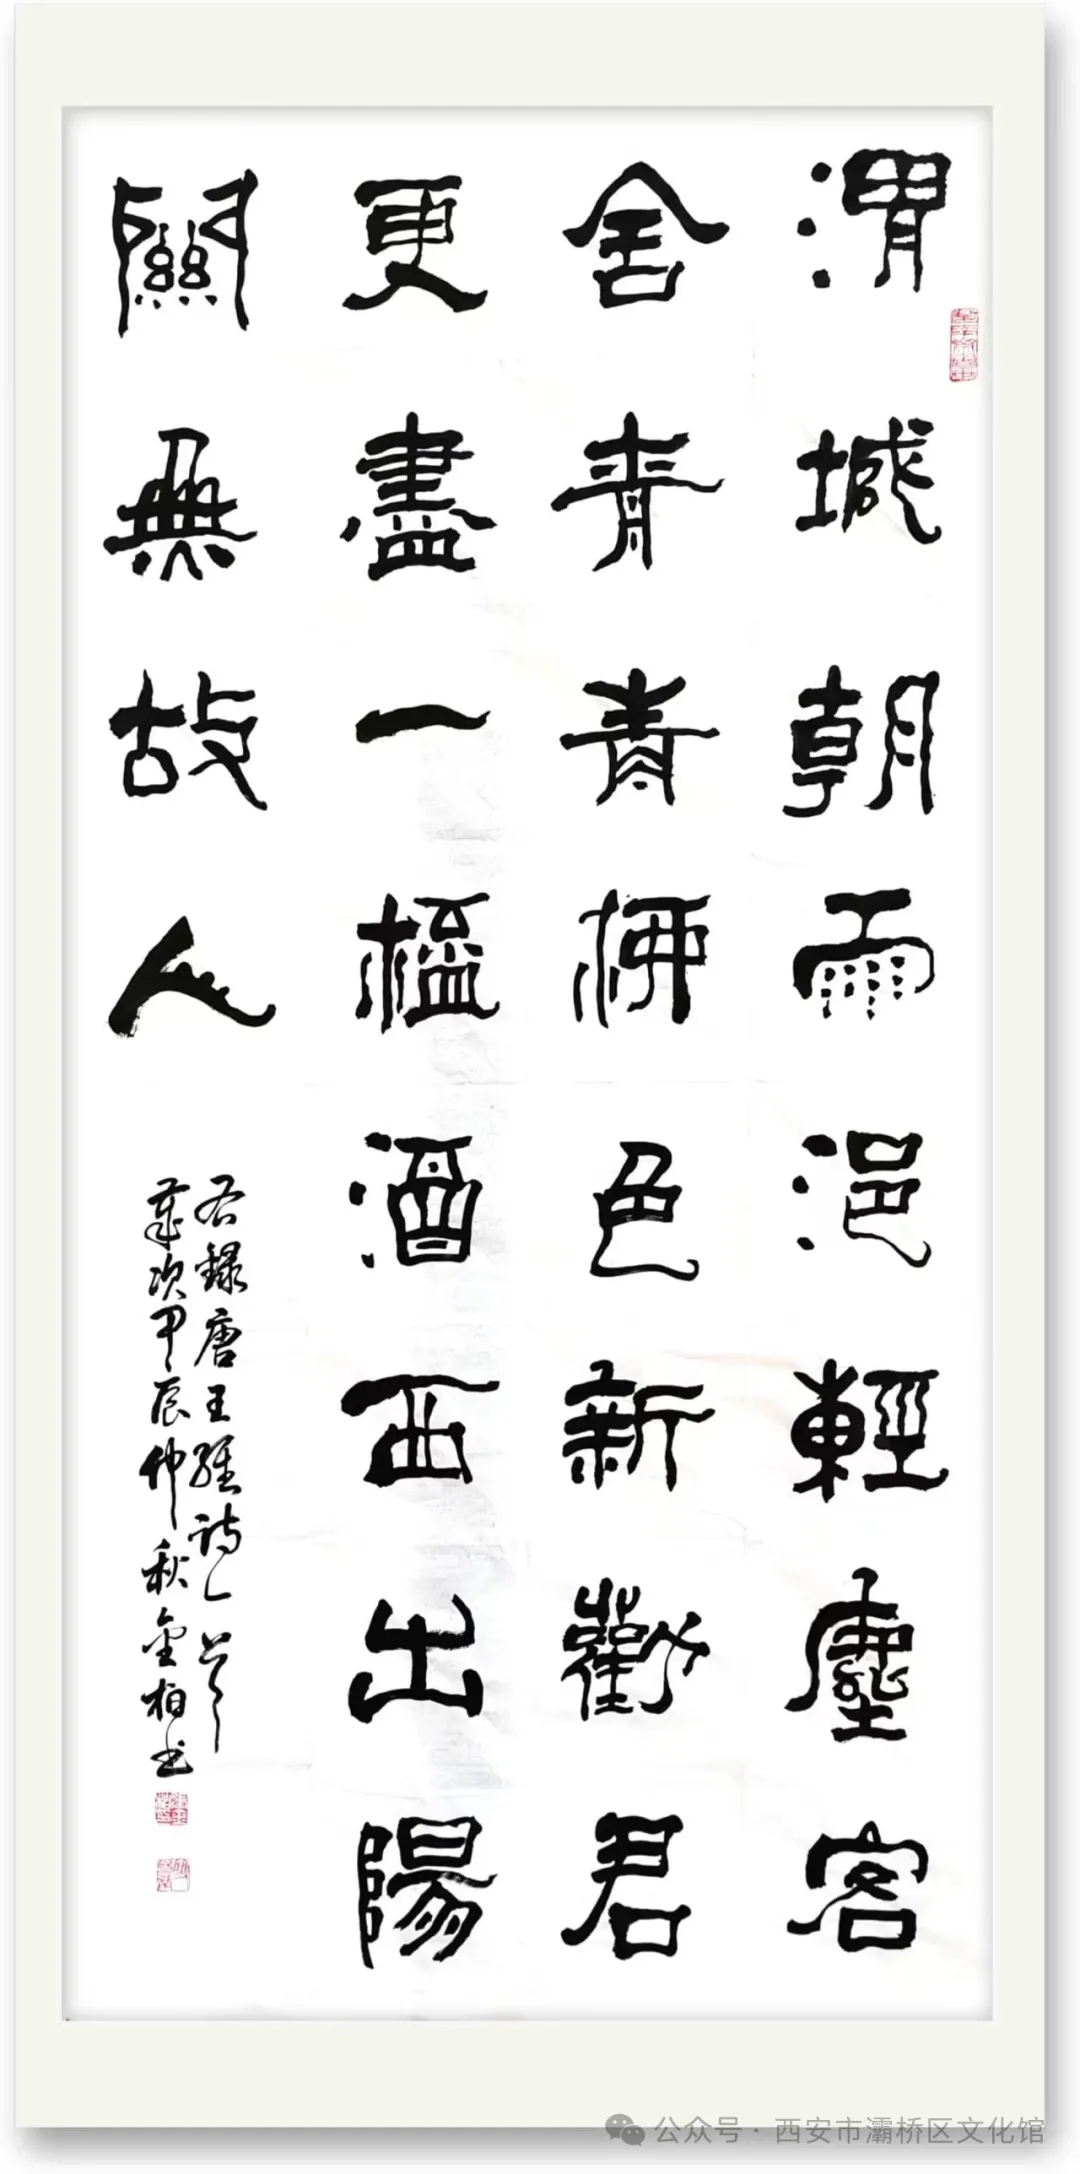 渭城朝雨浥輕塵客
舍青青柳色新勸君
更盡一杯酒西出陽
關無故人
右録唐王維詩一首
歲次甲辰仲秋金柏书
公众号·西安市灞桥区文化馆